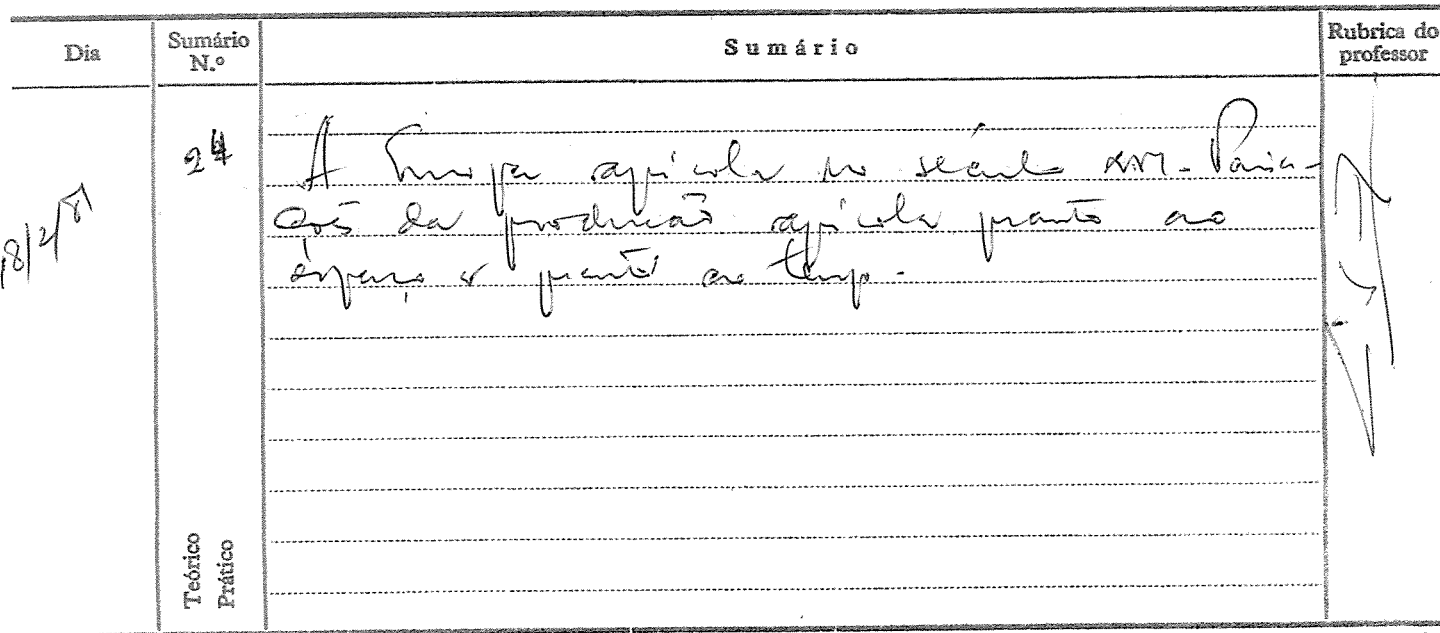 Dia
Sumário N.º
Sumário
Rubrica do professor
18/2/81
24
A Europa agrícola no século XVI. Varia-
ções da produção agrícola quanto ao
espaço e quanto ao tempo.
Teórico
Prático